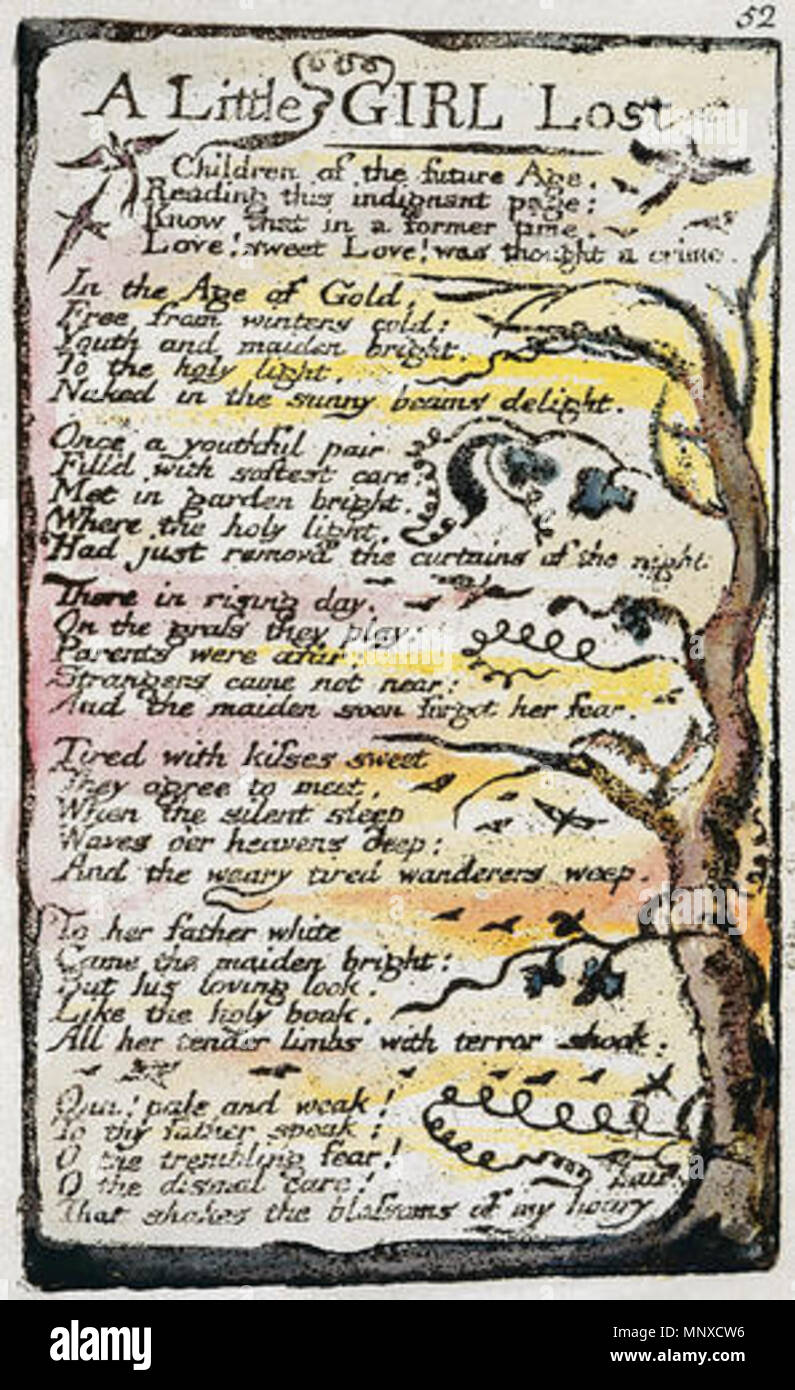 52
A Little GIRL Lost
Children of the future Age,
Reading this indignant page:
Know that in a former time,
Love! sweet Love! was thought a crime.
In the Age of Gold,
Free from winters cold:
Youth and maiden bright,
To the holy light,
Naked in the sunny beams delight.
Once a youthful pair
Filld with softest care:
Met in garden bright,
Where the holy light,
Had just removd the curtains of the night.
There in rising day,
On the grass they play:
Parents were afar:
Strangers came not near:
And the maiden soon forgot her fear.
Tired with kisses sweet
They agree to meet,
When the silent sleep
Waves o'er heavens deep:
And the weary tired wanderers weep.
To her father white
Came the maiden bright:
But his loving look,
Like the holy book,
All her tender limbs with terror shook.
Ona! pale and weak!
To thy father speak:
O the trembling fear!
O the dismal care!
That shakes the blossoms of my hoary hair
alamy
Image ID: MNXCW6
www.alamy.com